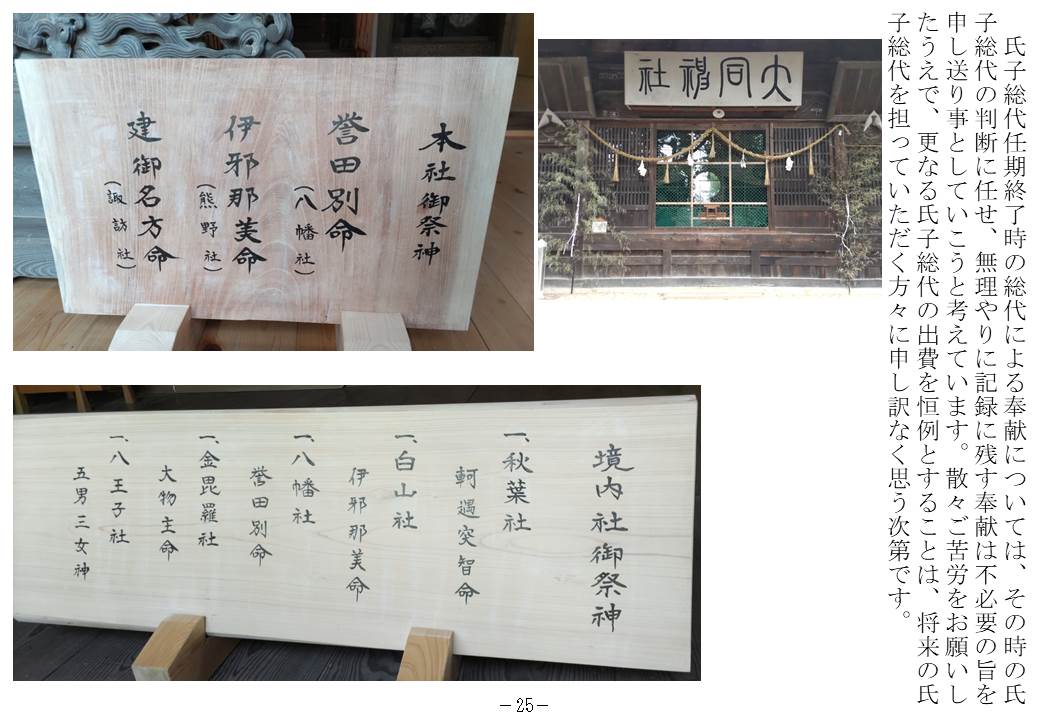 氏子総代任期終了時の総代による奉献については、その時の氏
子総代の判断に任せ、無理やりに記録に残す奉献は不必要の旨を
申し送り事としていこうと考えています。散々ご苦労をお願いし
たうえで、更なる氏子総代の出費を恒例とすることは、将来の氏
子総代を担っていただく方々に申し訳なく思う次第です。
大同神社
本社御祭神
誉田別命
(八幡社)
伊邪那美命
(熊野社)
建御名方命
(諏訪社)
境内社御祭神
一、秋葉社
軻遇突智命
一、白山社
伊邪那美命
一、八幡社
誉田別命
一、金毘羅社
大物主命
一、八王子社
五男三女神
−25−